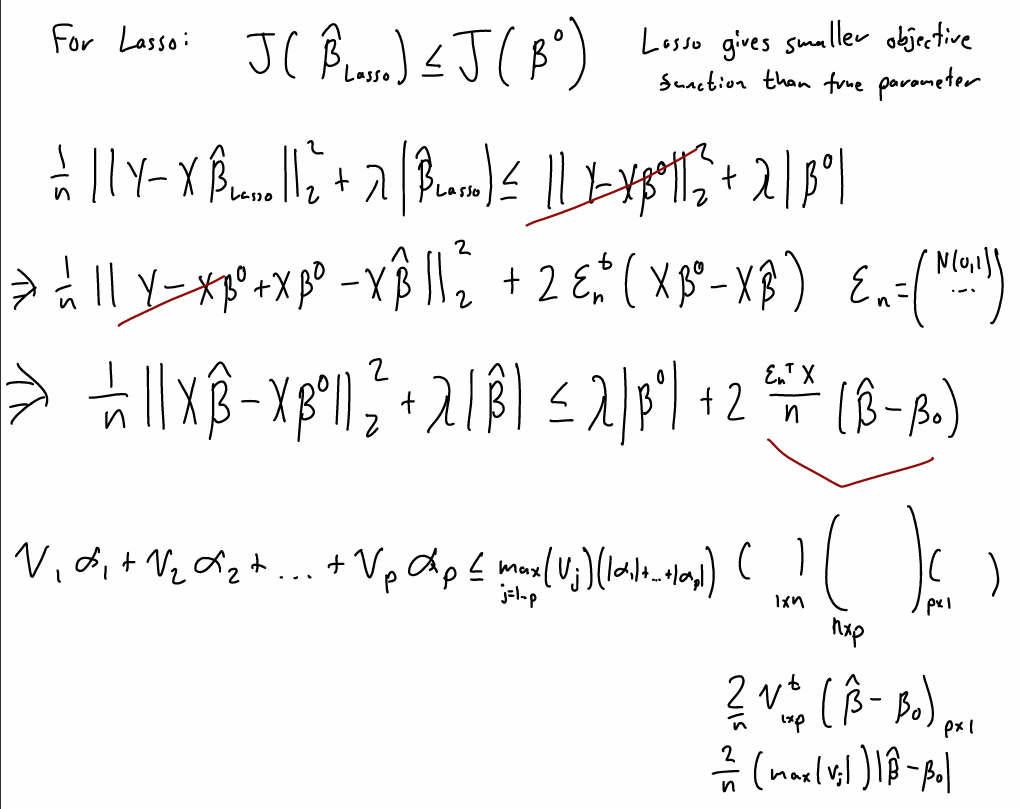 For Lasso: J(β̂_Lasso) ≤ J(β⁰) Lasso gives smaller objective
function than true parameter
1/n ||Y − Xβ̂_Lasso||₂² + λ|β̂_Lasso| ≤ ||Y − Xβ⁰||₂² + λ|β⁰|
⇒ 1/n ||Y − Xβ⁰ + Xβ⁰ − Xβ̂||₂² + 2 ε_n^t (Xβ⁰ − Xβ̂) ε_n = (N(0,1) ...)
⇒ 1/n ||Xβ̂ − Xβ⁰||₂² + λ|β̂| ≤ λ|β⁰| + 2 ε_n^T X / n (β̂ − β₀)
V₁α₁ + V₂α₂ + ... + V_pα_p ≤ max_{j=1-p}(V_j)(|α₁|+...+|α_p|) ( )_{1×n} ( )_{n×p} ( )_{p×1}
2/n V^t_{1×p} (β̂ − β₀)_{p×1}
2/n (max|V_j|)|β̂ − β₀|